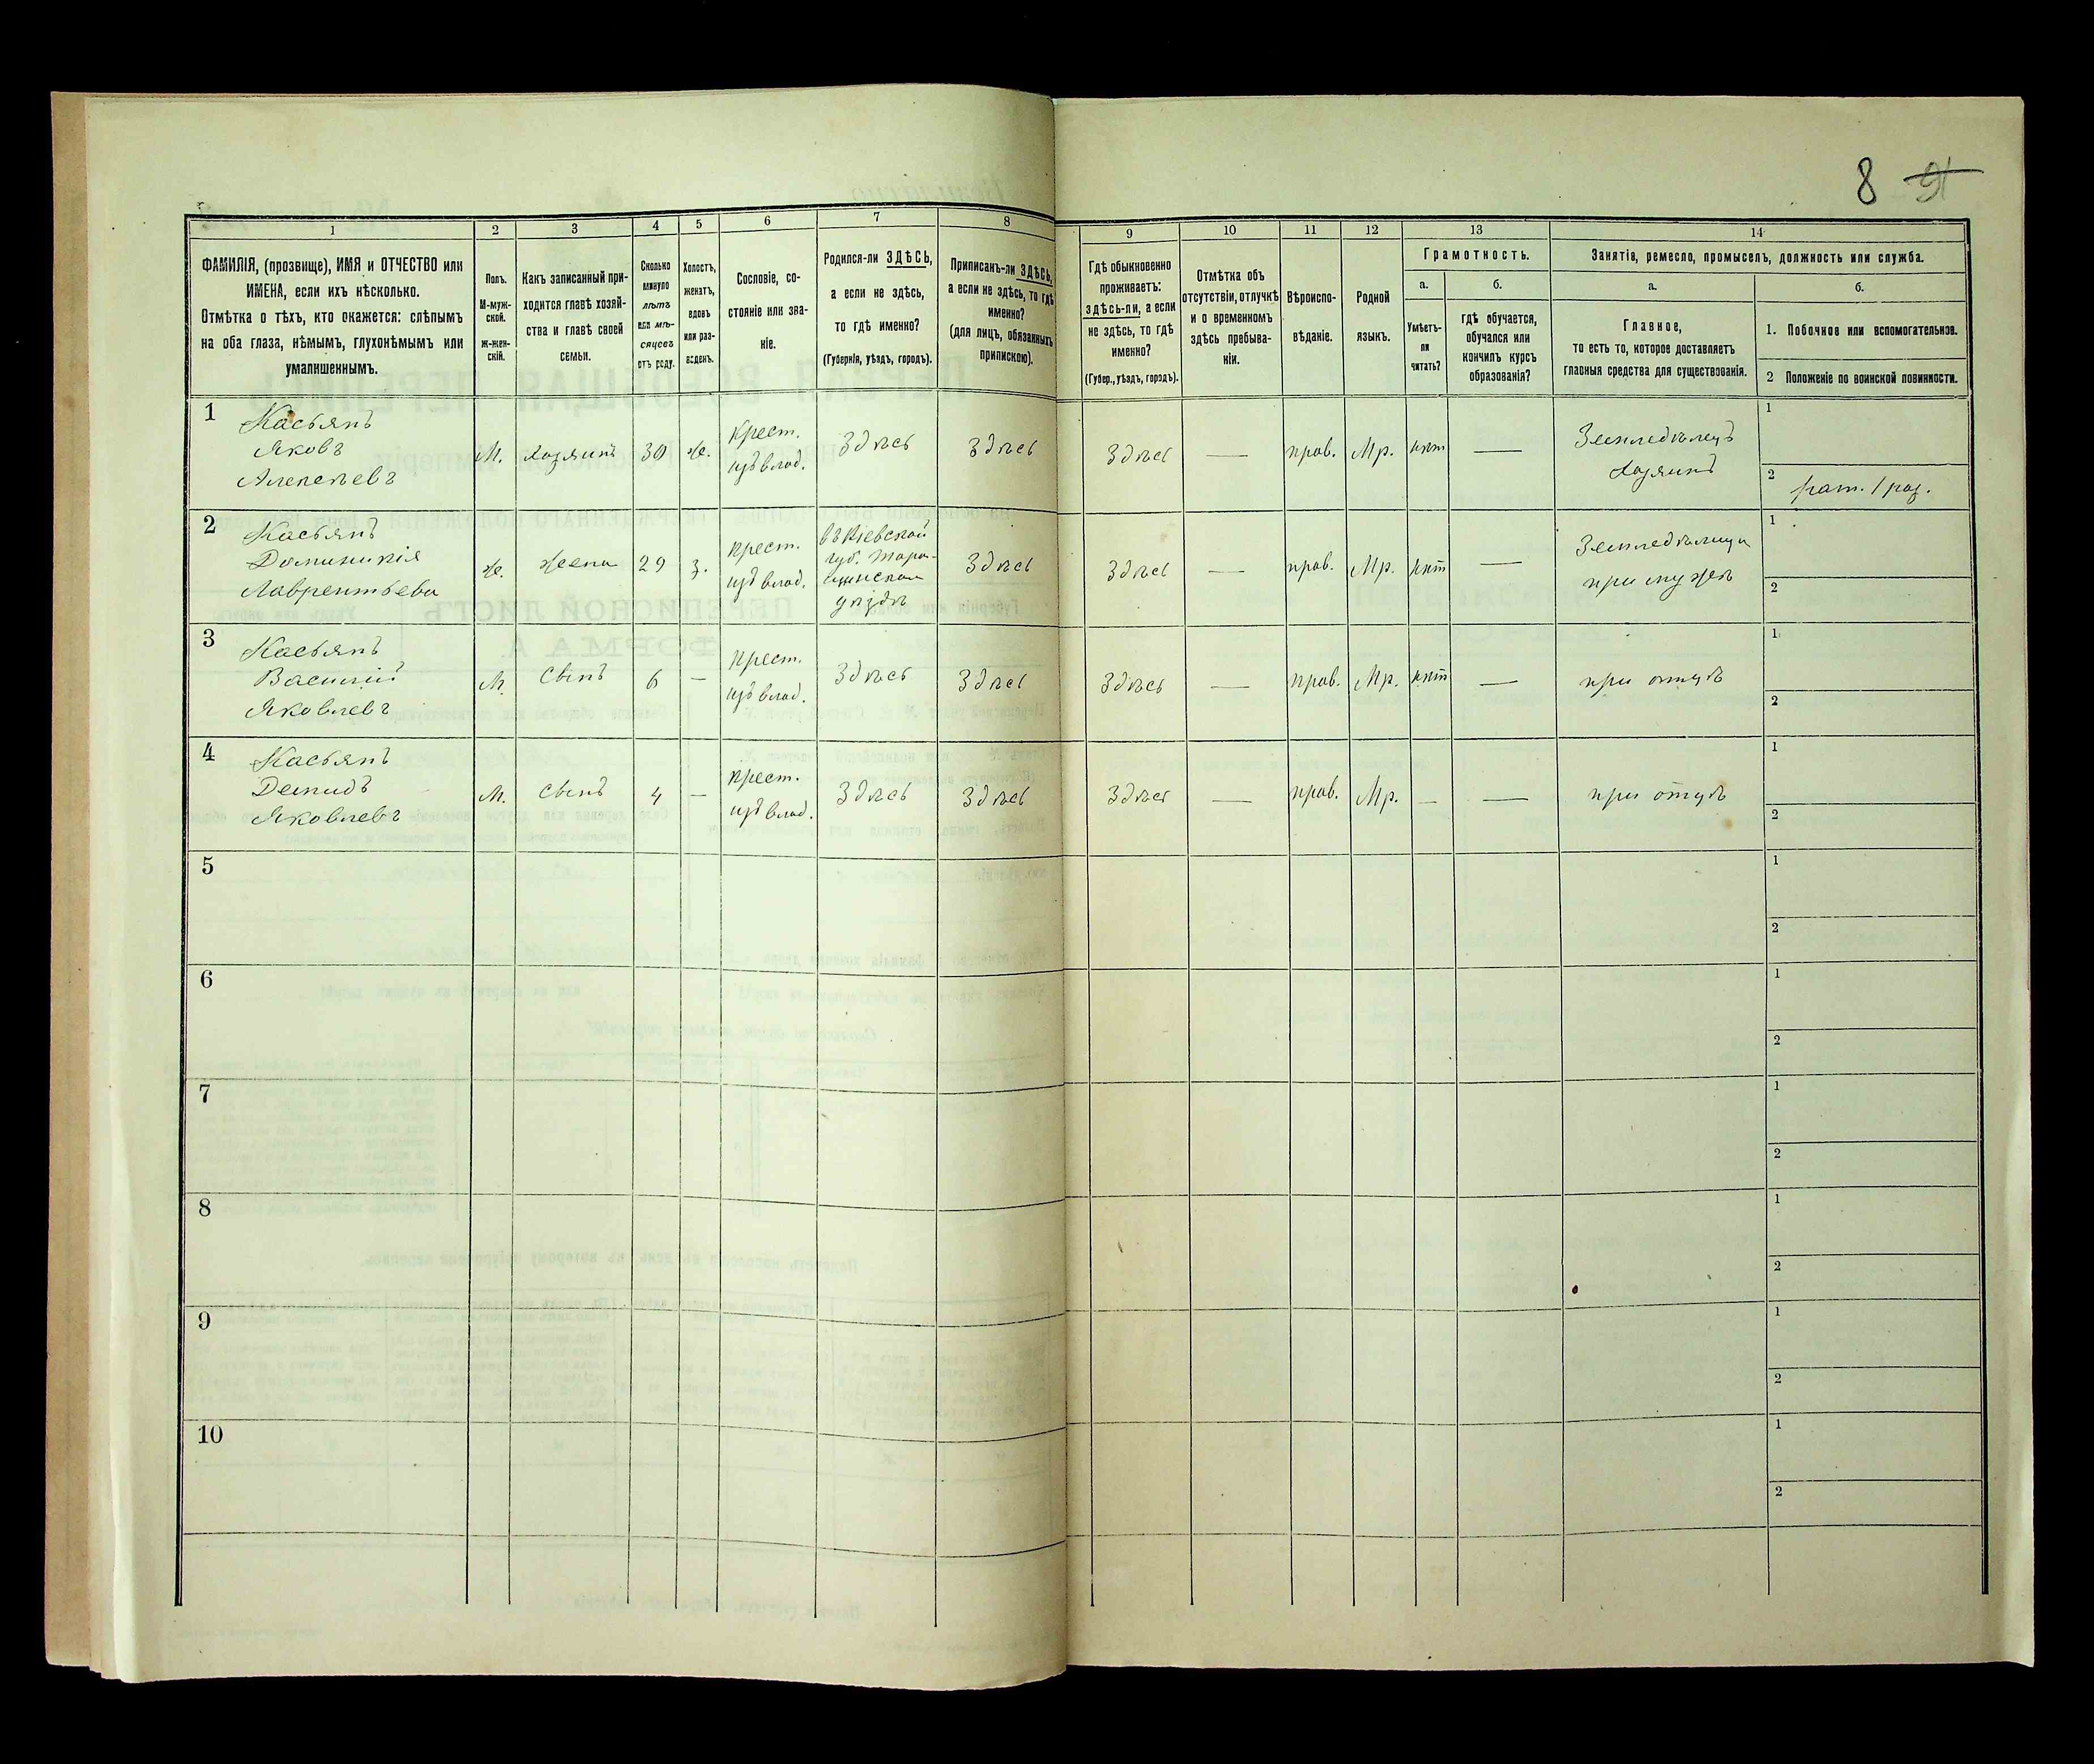 8 91
1
2
3
4
5
6
7
8
9
10
11
12
13
14
ФАМИЛІЯ, (прозвище), ИМЯ и ОТЧЕСТВО или
ИМЕНА, если ихъ нѣсколько.
Отмѣтка о тѣхъ, кто окажется: слѣпымъ
на оба глаза, нѣмымъ, глухонѣмымъ или
умалишеннымъ.
Полъ.
М-муж-
ской.
ж-жен-
скій.
Какъ записанный при-
ходится главѣ хозяй-
ства и главѣ своей
семьи.
Сколько
минуло
лѣтъ
или мѣ-
сяцевъ
отъ роду.
Холостъ,
женатъ,
вдовъ
или раз-
веденъ.
Сословіе, со-
стояніе или зва-
ніе.
Родился-ли ЗДѢСЬ,
а если не здѣсь,
то гдѣ именно?
(Губернія, уѣздъ, городъ).
Приписанъ-ли ЗДѢСЬ,
а если не здѣсь, то гдѣ
именно?
(для лицъ, обязанныхъ
припискою).
Гдѣ обыкновенно
проживаетъ:
здѣсь-ли, а если
не здѣсь, то гдѣ
именно?
(Губер., уѣздъ, городъ).
Отмѣтка объ
отсутствіи, отлучкѣ
и о временномъ
здѣсь пребыва-
ніи.
Вѣроиспо-
вѣданіе.
Родной
языкъ.
Грамотность.
а.
Умѣетъ-
ли
читать?
б.
гдѣ обучается,
обучался или
кончилъ курсъ
образованія?
Занятія, ремесло, промыселъ, должность или служба.
а.
Главное,
то есть то, которое доставляетъ
главныя средства для существованія.
б.
1. Побочное или вспомогательное.
2 Положеніе по воинской повинности.
1
Касьянъ
Яковъ
Алексѣевъ
М.
хозяинъ
30
ж.
крест.
изъ влад.
Здѣсь
Здѣсь
Здѣсь
—
прав.
Мр.
нѣт
—
Земледѣлецъ
хозяинъ
1
2
рат. 1 раз.
2
Касьянъ
Доминикія
Лаврентьева
ж.
жена
29
з.
крест.
изъ влад.
въ Кіевской
губ. Тара-
щинскомъ
уѣздѣ
Здѣсь
Здѣсь
—
прав.
Мр.
нѣт
—
Земледѣлица
при мужѣ
1
2
3
Касьянъ
Василій
Яковлевъ
М.
сынъ
6
—
крест.
изъ влад.
Здѣсь
Здѣсь
Здѣсь
—
прав.
Мр.
нѣт
—
при отцѣ
1
2
4
Касьянъ
Демидъ
Яковлевъ
М.
сынъ
4
—
крест.
изъ влад.
Здѣсь
Здѣсь
Здѣсь
—
прав.
Мр.
—
—
при отцѣ
1
2
5
1
2
6
1
2
7
1
2
8
1
2
9
1
2
10
1
2